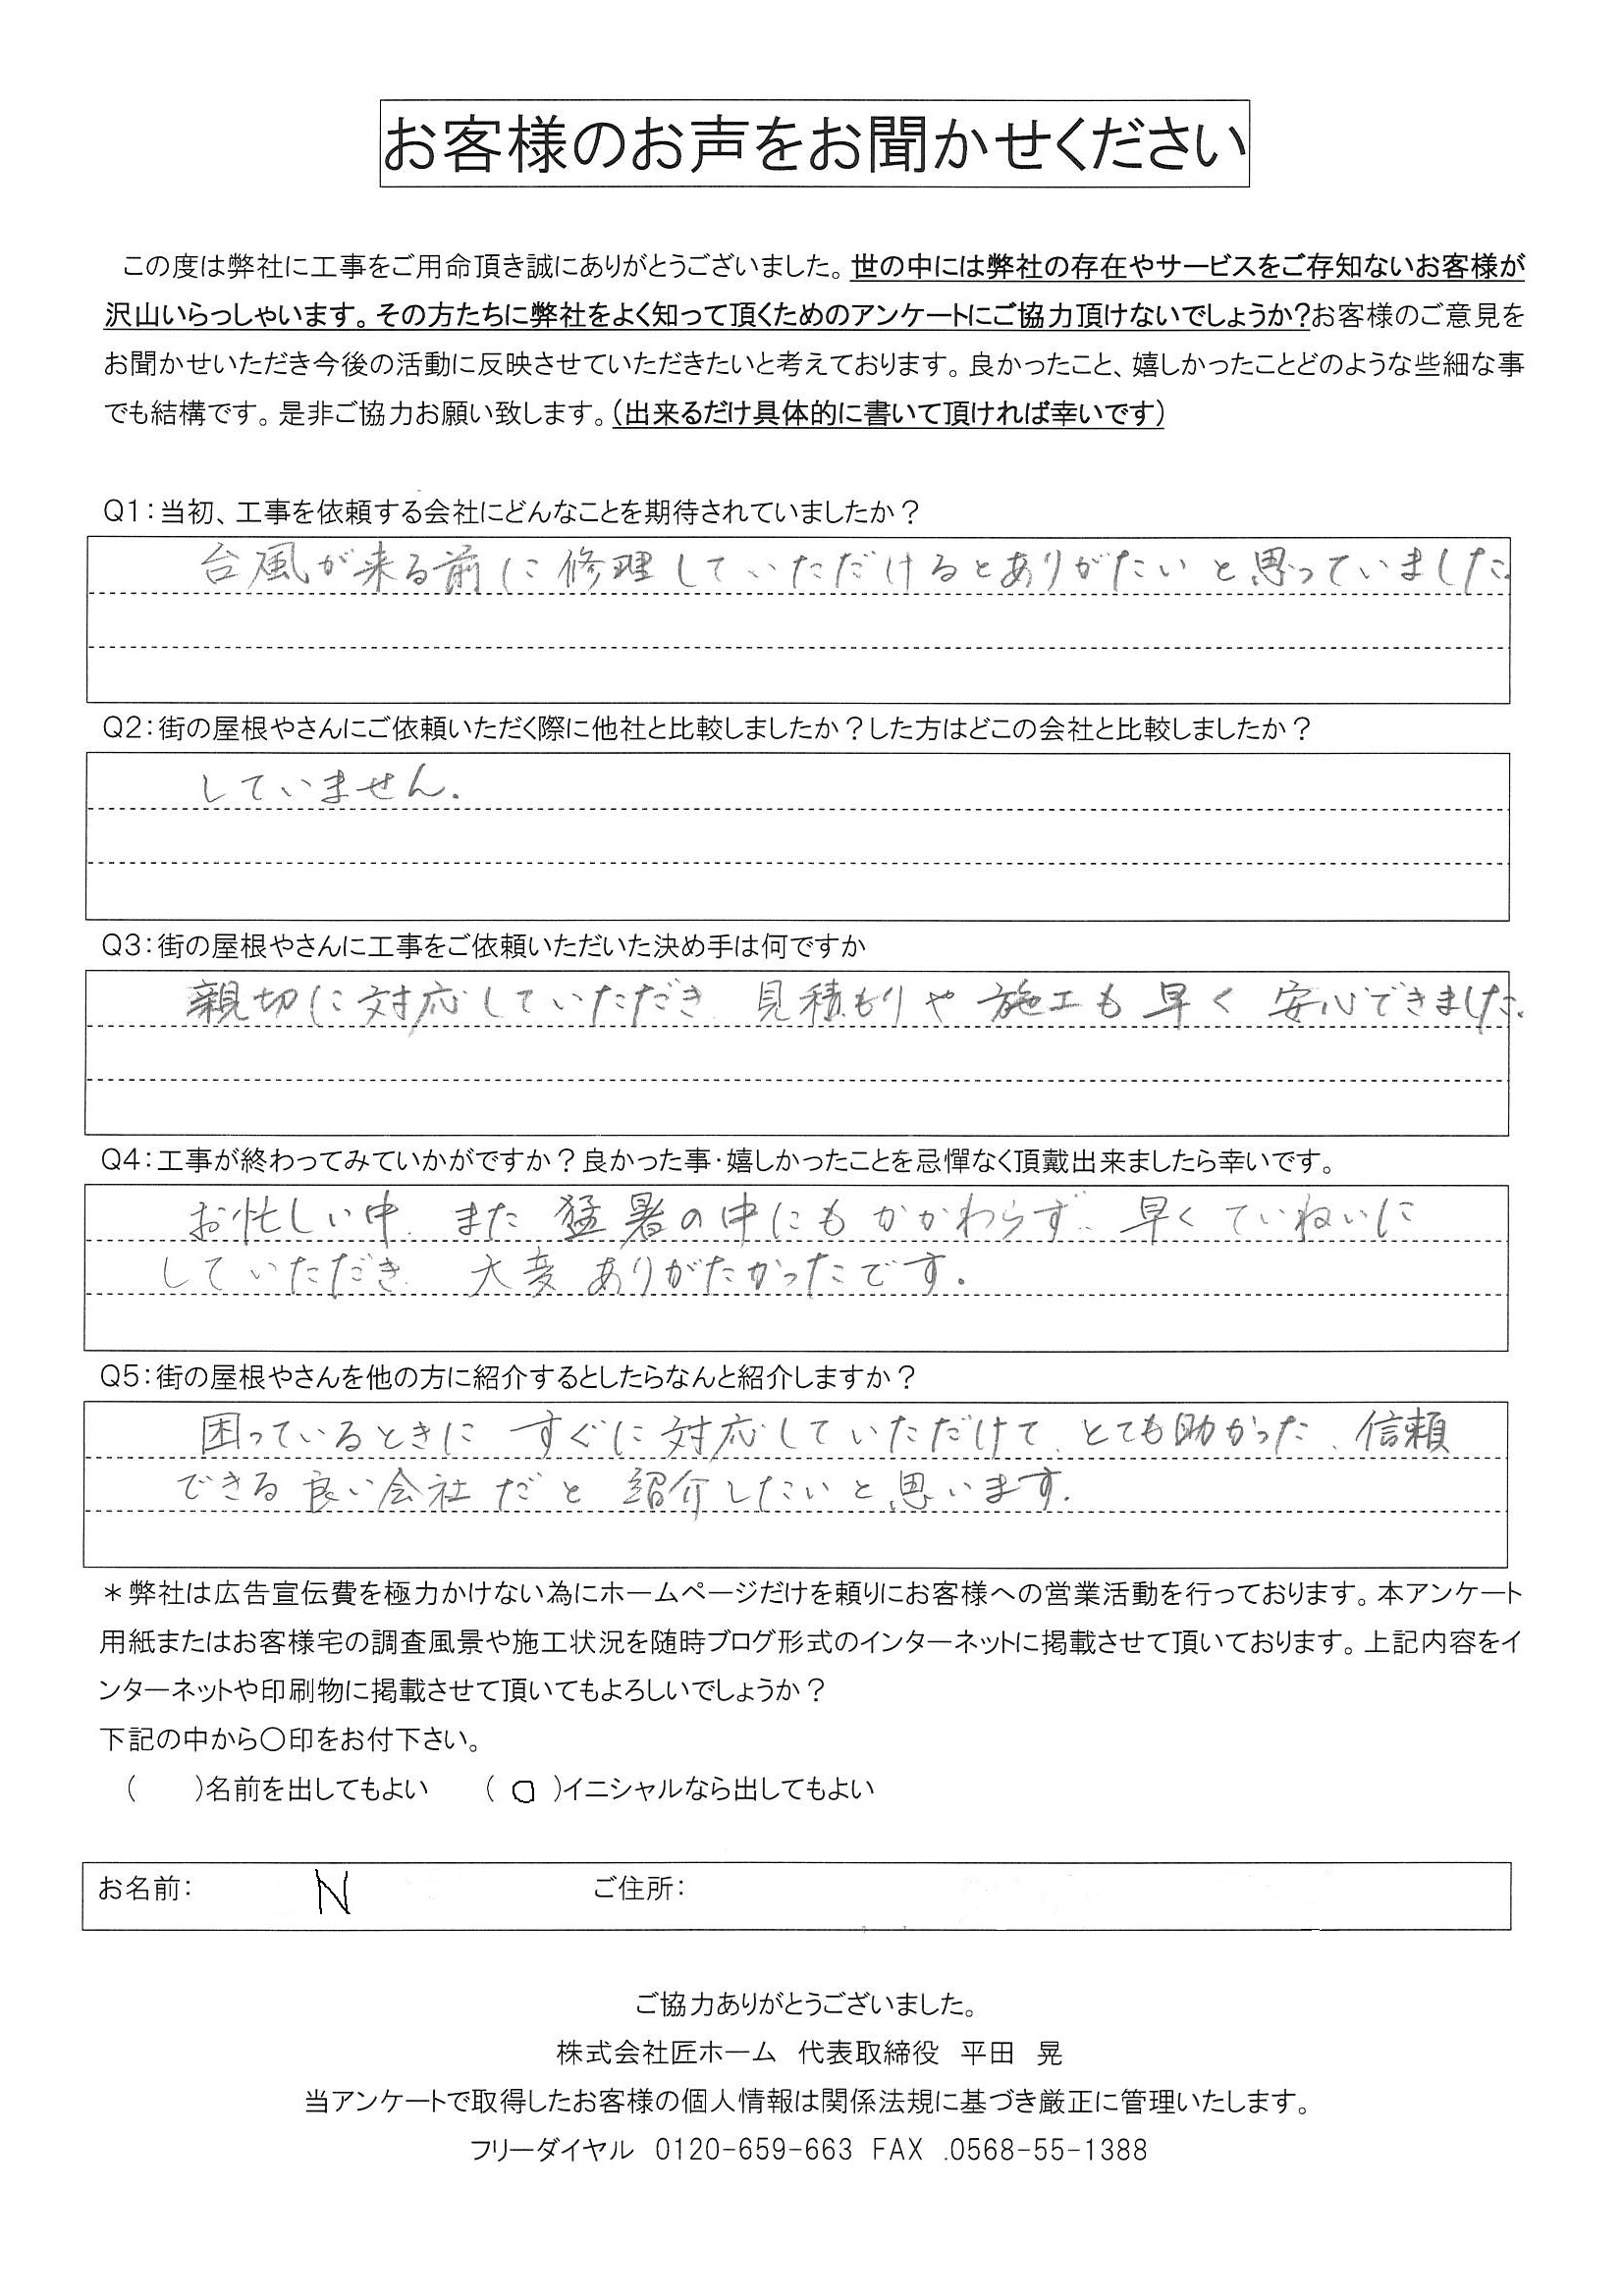 お客様のお声をお聞かせください
この度は弊社に工事をご用命頂き誠にありがとうございました。世の中には弊社の存在やサービスをご存知ないお客様が
沢山いらっしゃいます。その方たちに弊社をよく知って頂くためのアンケートにご協力頂けないでしょうか?お客様のご意見を
お聞かせいただき今後の活動に反映させていただきたいと考えております。良かったこと、嬉しかったことどのような些細な事
でも結構です。是非ご協力お願い致します。(出来るだけ具体的に書いて頂ければ幸いです)
Q1:当初、工事を依頼する会社にどんなことを期待されていましたか?
台風が来る前に修理していただけるとありがたいと思っていました。
Q2:街の屋根やさんにご依頼いただく際に他社と比較しましたか?した方はどこの会社と比較しましたか?
していません.
Q3:街の屋根やさんに工事をご依頼いただいた決め手は何ですか
親切に対応していただき 見積もりや施工も早く 安心できました.
Q4:工事が終わってみていかがですか?良かった事・嬉しかったことを忌憚なく頂戴出来ましたら幸いです。
お忙しい中、また 猛暑の中にもかかわらず、早く ていねいに
していただき、大変ありがたかったです.
Q5:街の屋根やさんを他の方に紹介するとしたらなんと紹介しますか?
困っているときに すぐに対応していただけて、とても助かった、信頼
できる良い会社だと 紹介したいと思います.
*弊社は広告宣伝費を極力かけない為にホームページだけを頼りにお客様への営業活動を行っております。本アンケート
用紙またはお客様宅の調査風景や施工状況を随時ブログ形式のインターネットに掲載させて頂いております。上記内容をイ
ンターネットや印刷物に掲載させて頂いてもよろしいでしょうか?
下記の中から〇印をお付下さい。
( )名前を出してもよい ( 〇 )イニシャルなら出してもよい
お名前: N ご住所:
ご協力ありがとうございました。
株式会社匠ホーム 代表取締役 平田 晃
当アンケートで取得したお客様の個人情報は関係法規に基づき厳正に管理いたします。
フリーダイヤル 0120-659-663 FAX .0568-55-1388